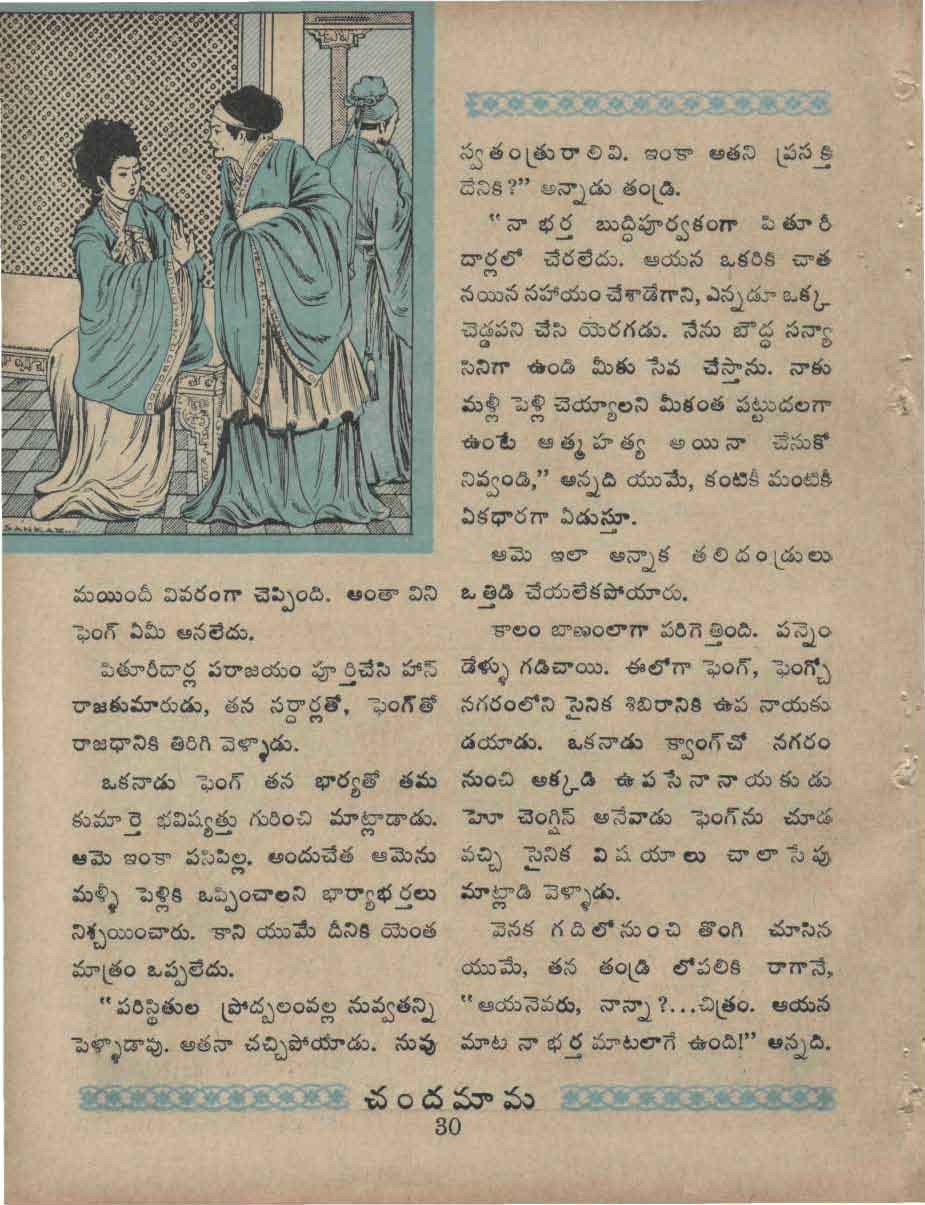 SANKAR...
మయిందీ వివరంగా చెప్పింది. అంతా విని
ఫెంగ్ ఏమీ అనలేదు.
పితూరీదార్ల పరాజయం పూర్తిచేసి హాన్
రాజకుమారుడు, తన సర్దార్లతో, ఫెంగ్‌తో
రాజధానికి తిరిగి వెళ్ళాడు.
ఒకనాడు ఫెంగ్ తన భార్యతో తమ
కుమార్తె భవిష్యత్తు గురించి మాట్లాడాడు.
ఆమె ఇంకా పసిపిల్ల. అందుచేత ఆమెను
మళ్ళీ పెళ్లికి ఒప్పించాలని భార్యాభర్తలు
నిశ్చయించారు. కాని యుమే దీనికి యెంత
మాత్రం ఒప్పలేదు.
“పరిస్థితుల ప్రోద్బలంవల్ల నువ్వతన్ని
పెళ్ళాడావు. అతనా చచ్చిపోయాడు. నువు
స్వతంత్రురాలివి. ఇంకా అతని ప్రసక్తి
దేనికి?” అన్నాడు తండ్రి.
“నా భర్త బుద్ధిపూర్వకంగా పితూరీ
దార్లలో చేరలేదు. ఆయన ఒకరికి చాత
నయిన సహాయం చేశాడేగాని, ఎన్నడూ ఒక్క
చెడ్డపని చేసి యెరగడు. నేను బౌద్ధ సన్యా
సినిగా ఉండి మీకు సేవ చేస్తాను. నాకు
మళ్లీ పెళ్లి చెయ్యాలని మీకంత పట్టుదలగా
ఉంటే ఆత్మహత్య అయినా చేసుకో
నివ్వండి,” అన్నది యుమే, కంటికీ మంటికీ
ఏకధారగా ఏడుస్తూ.
ఆమె ఇలా అన్నాక తలిదండ్రులు
ఒత్తిడి చేయలేకపోయారు.
కాలం బాణంలాగా పరిగెత్తింది. పన్నెం
డేళ్ళు గడిచాయి. ఈలోగా ఫెంగ్, ఫెంగ్చో
నగరంలోని సైనిక శిబిరానికి ఉప నాయకు
డయాడు. ఒకనాడు క్వాంగ్‌చో నగరం
నుంచి అక్కడి ఉపసేనానాయకుడు
హెూ చెంగ్షిన్ అనేవాడు ఫెంగ్‌ను చూడ
వచ్చి సైనిక విషయాలు చాలాసేపు
మాట్లాడి వెళ్ళాడు.
వెనక గదిలోనుంచి తొంగి చూసిన
యుమే, తన తండ్రి లోపలికి రాగానే,
“ఆయనెవరు, నాన్నా?...చిత్రం. ఆయన
మాట నా భర్త మాటలాగే ఉంది!” అన్నది.
చందమామ
30